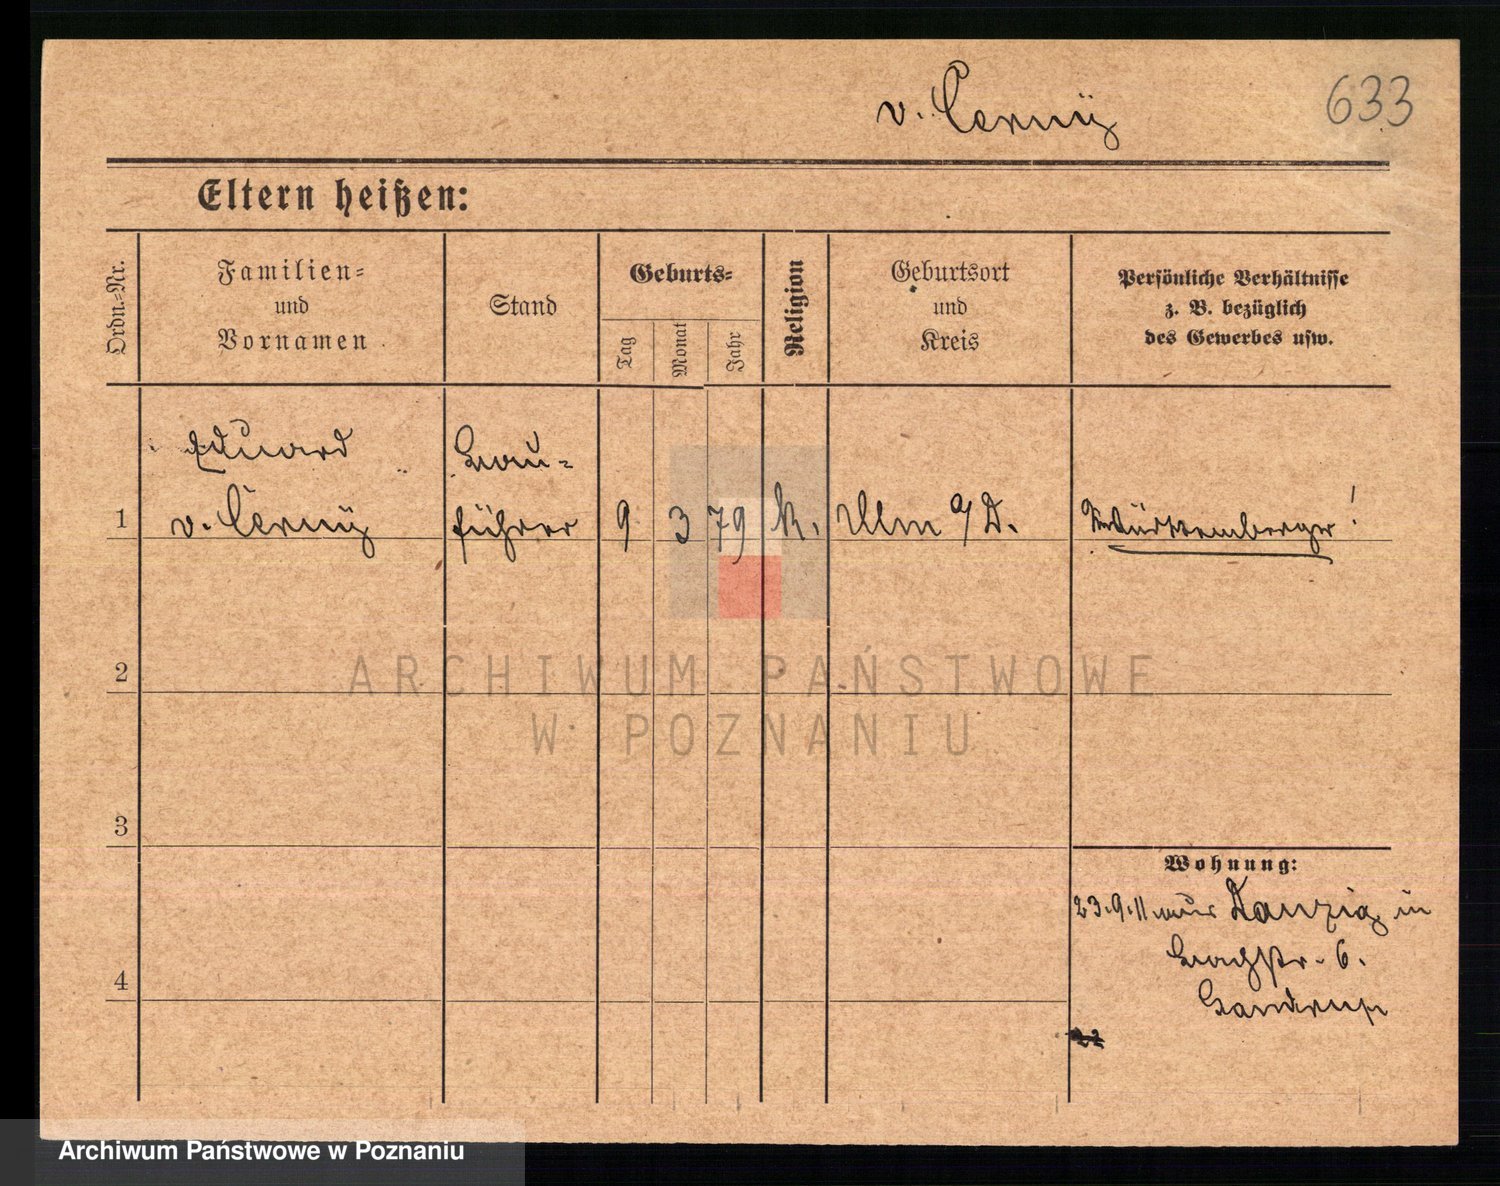 v. Cerny
633
Eltern heißen:
Ordn.-Nr.
Familien-
und
Vornamen
Stand
Geburts-
Tag
Monat
Jahr
Religion
Geburtsort
und
Kreis
Persönliche Verhältnisse
z. B. bezüglich
des Gewerbes usw.
1
Eduard
v. Cerny
Bau-
führer
9
3
79
k.
Ulm a/D.
Württemberger!
2
3
4
Wohnung:
23.9.11 aus Danzig in
Bachstr. 6.
22
ARCHIWUM PAŃSTWOWE
W POZNANIU
Archiwum Państwowe w Poznaniu